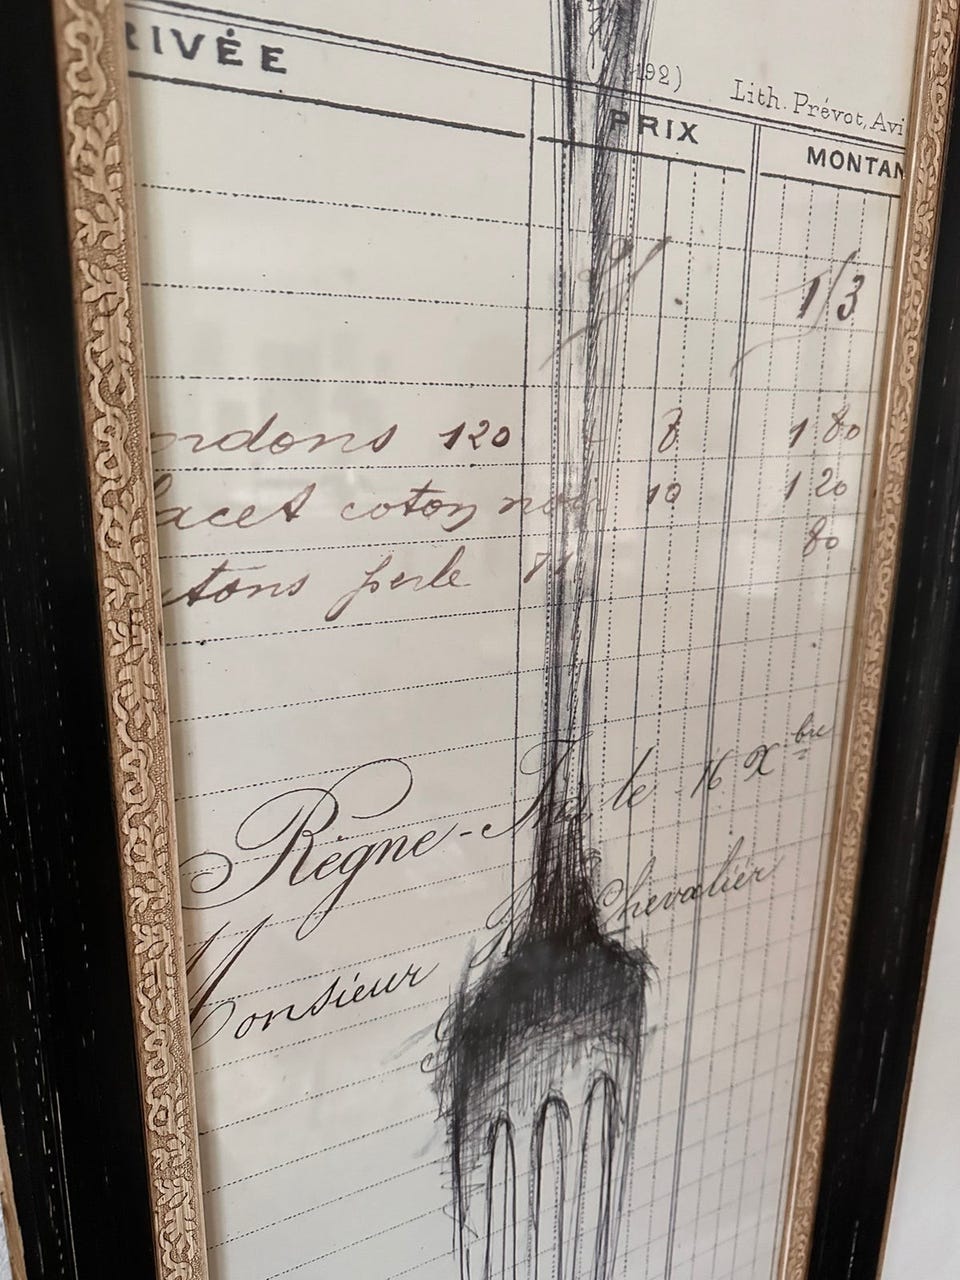 RIVÉE
192) Lith. Prévot, Avi
PRIX MONTAN
1/3
ndons 120 8 1 80
lacet coton noir 10 1 20
tons perle 80
Règne- le 16 Xbre
Monsieur Chevalier